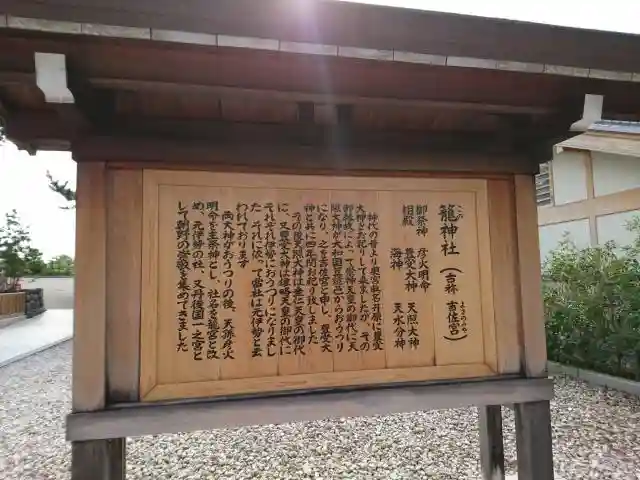 籠神社（古称 吉佐宮）
この
よさのみや
御祭神 彦火明命
豊受大神 天照大神
相殿 海神 天水分神
神代の昔より奥宮眞名井原に豊受
大神をお祀りして来ましたが、その
御縁故によって崇神天皇の御代に天
照大神が大和国笠縫邑からおうつり
になり、之を吉佐宮と申し、豊受大
神と共に四年間お祀り致しました
その後天照大神は垂仁天皇の御代
に、又豊受大神は雄略天皇の御代に
それぞれ伊勢におうつりになりまし
た。それに依って當社は元伊勢と云
われております
両大神がおうつりの後、天孫彦火
明命を主祭神とし、社号を籠宮と改
め、元伊勢の社、又丹後国一之宮と
して朝野の崇敬を集めてきました